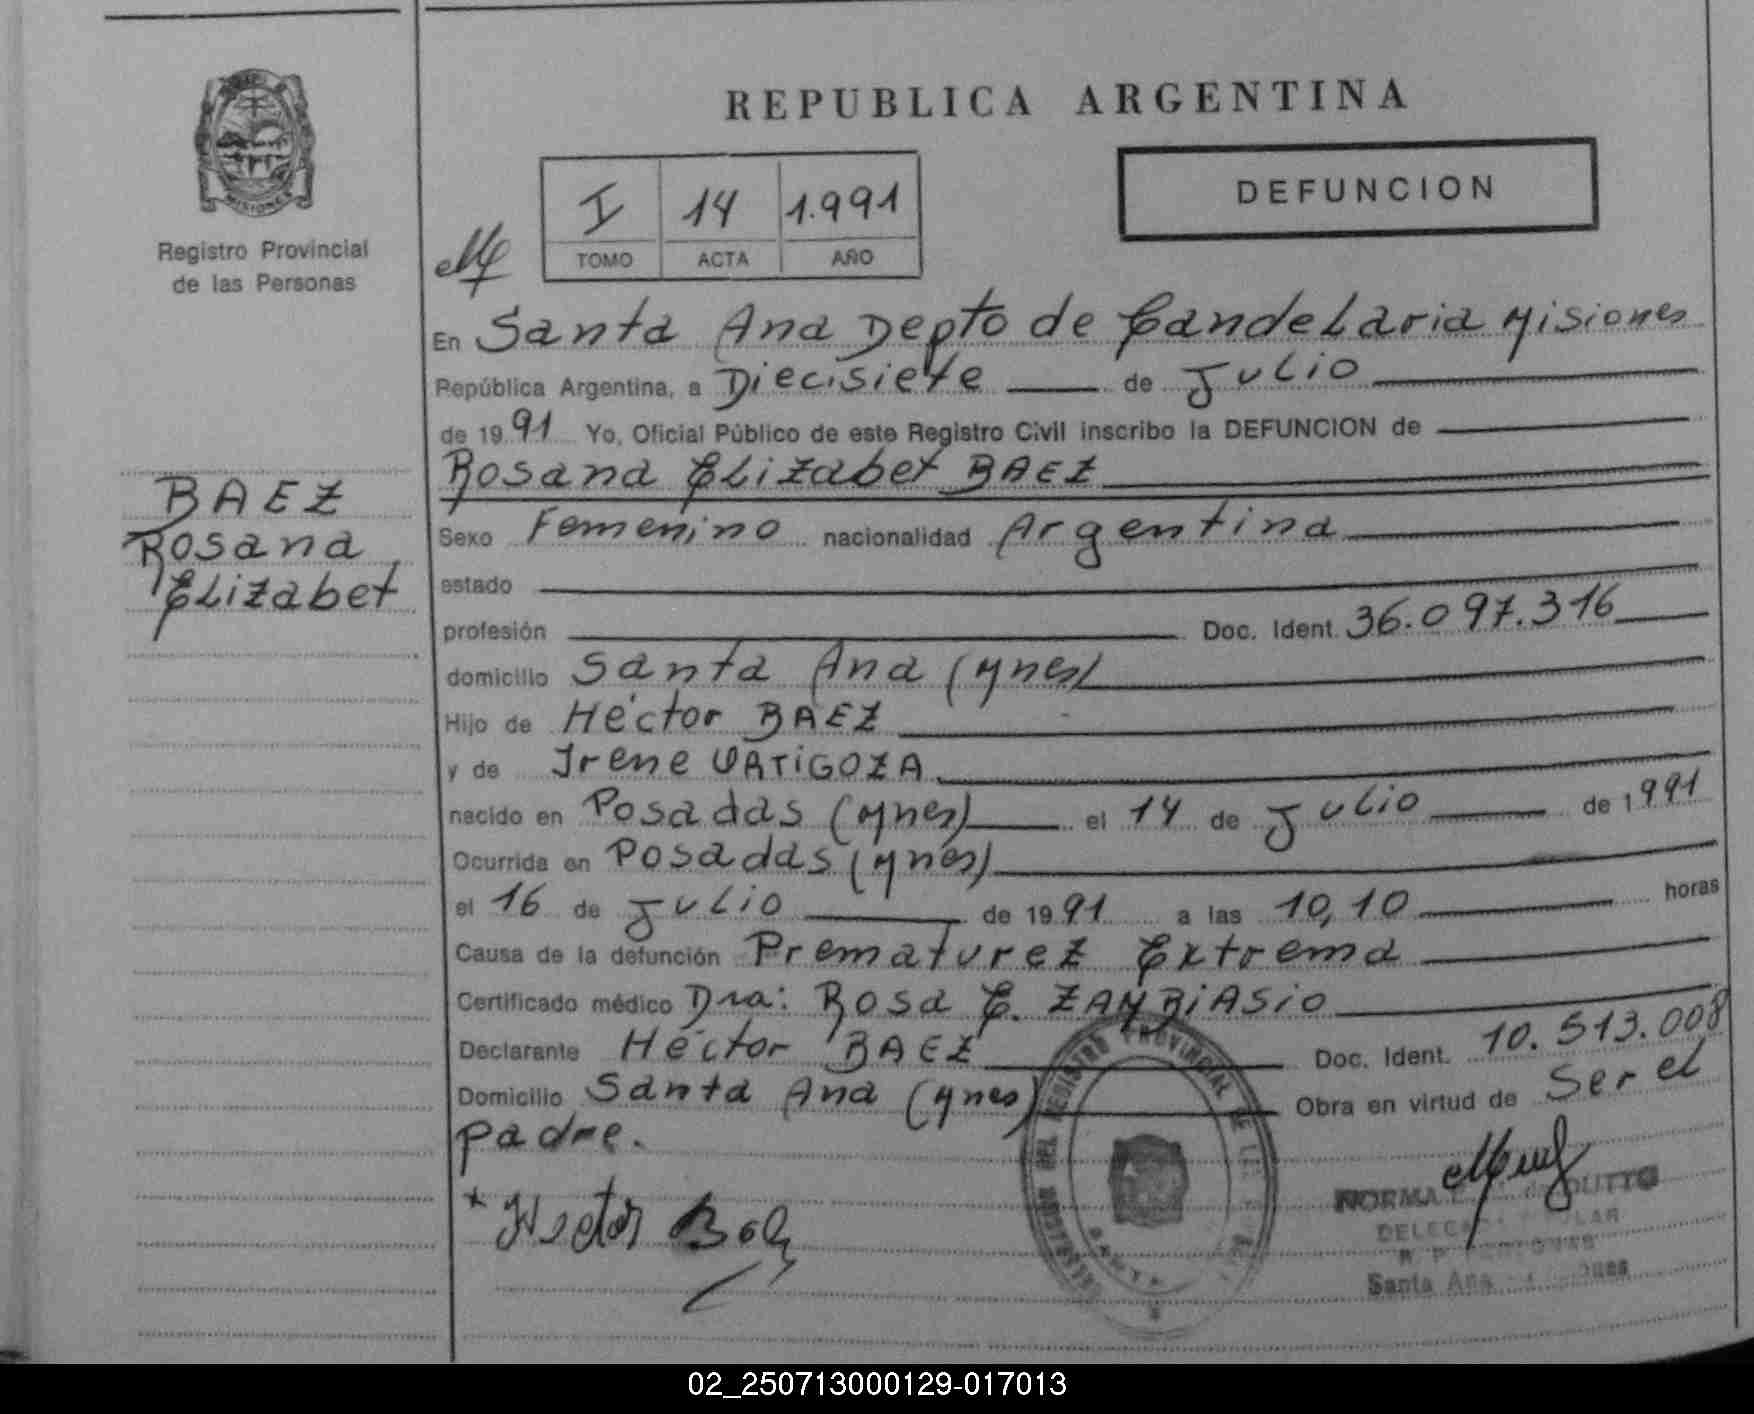 REPUBLICA ARGENTINA
MISIONES
Registro Provincial
de las Personas
I 14 1.991
TOMO ACTA AÑO
DEFUNCION
En Santa Ana Depto de Candelaria Misiones
República Argentina, a Diecisiete de Julio
de 1991 Yo, Oficial Público de este Registro Civil inscribo la DEFUNCION de
Rosana Elizabet BAEZ
BAEZ
Rosana
Elizabet
Sexo Femenino nacionalidad Argentina
estado
profesión Doc. Ident. 36.097.316
domicilio Santa Ana (Mnes)
Hijo de Héctor BAEZ
y de Irene URTIGOZA
nacido en Posadas (Mnes) el 14 de Julio de 1991
Ocurrida en Posadas (Mnes)
el 16 de Julio de 1991 a las 10,10 horas
Causa de la defunción Prematurez Extrema
Certificado médico Dra: Rosa E. ZAMBIASIO
Declarante Héctor BAEZ Doc. Ident. 10.513.008
Domicilio Santa Ana (Mnes) Obra en virtud de Ser el
padre.
REGISTRO PROVINCIAL DE
Hector
NORMA
Santa Ana
02_250713000129-017013